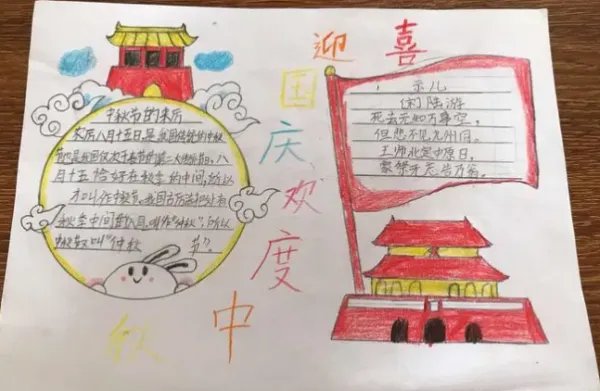 喜迎
国
庆
欢
度
中
秋
中秋节的来历
农历八月十五日是我国传统的中秋
节也是我国仅次于春节的第二大传统节日。八
月十五恰好在秋季的中间,所以
才叫作中秋节。我国古历法把处在
秋季中间的八月,叫作"仲秋",所以
中秋又叫"仲秋 节"
示儿
陆游
死去元知万事空,
但悲不见九州同。
王师北定中原日,
家祭无忘告乃翁。